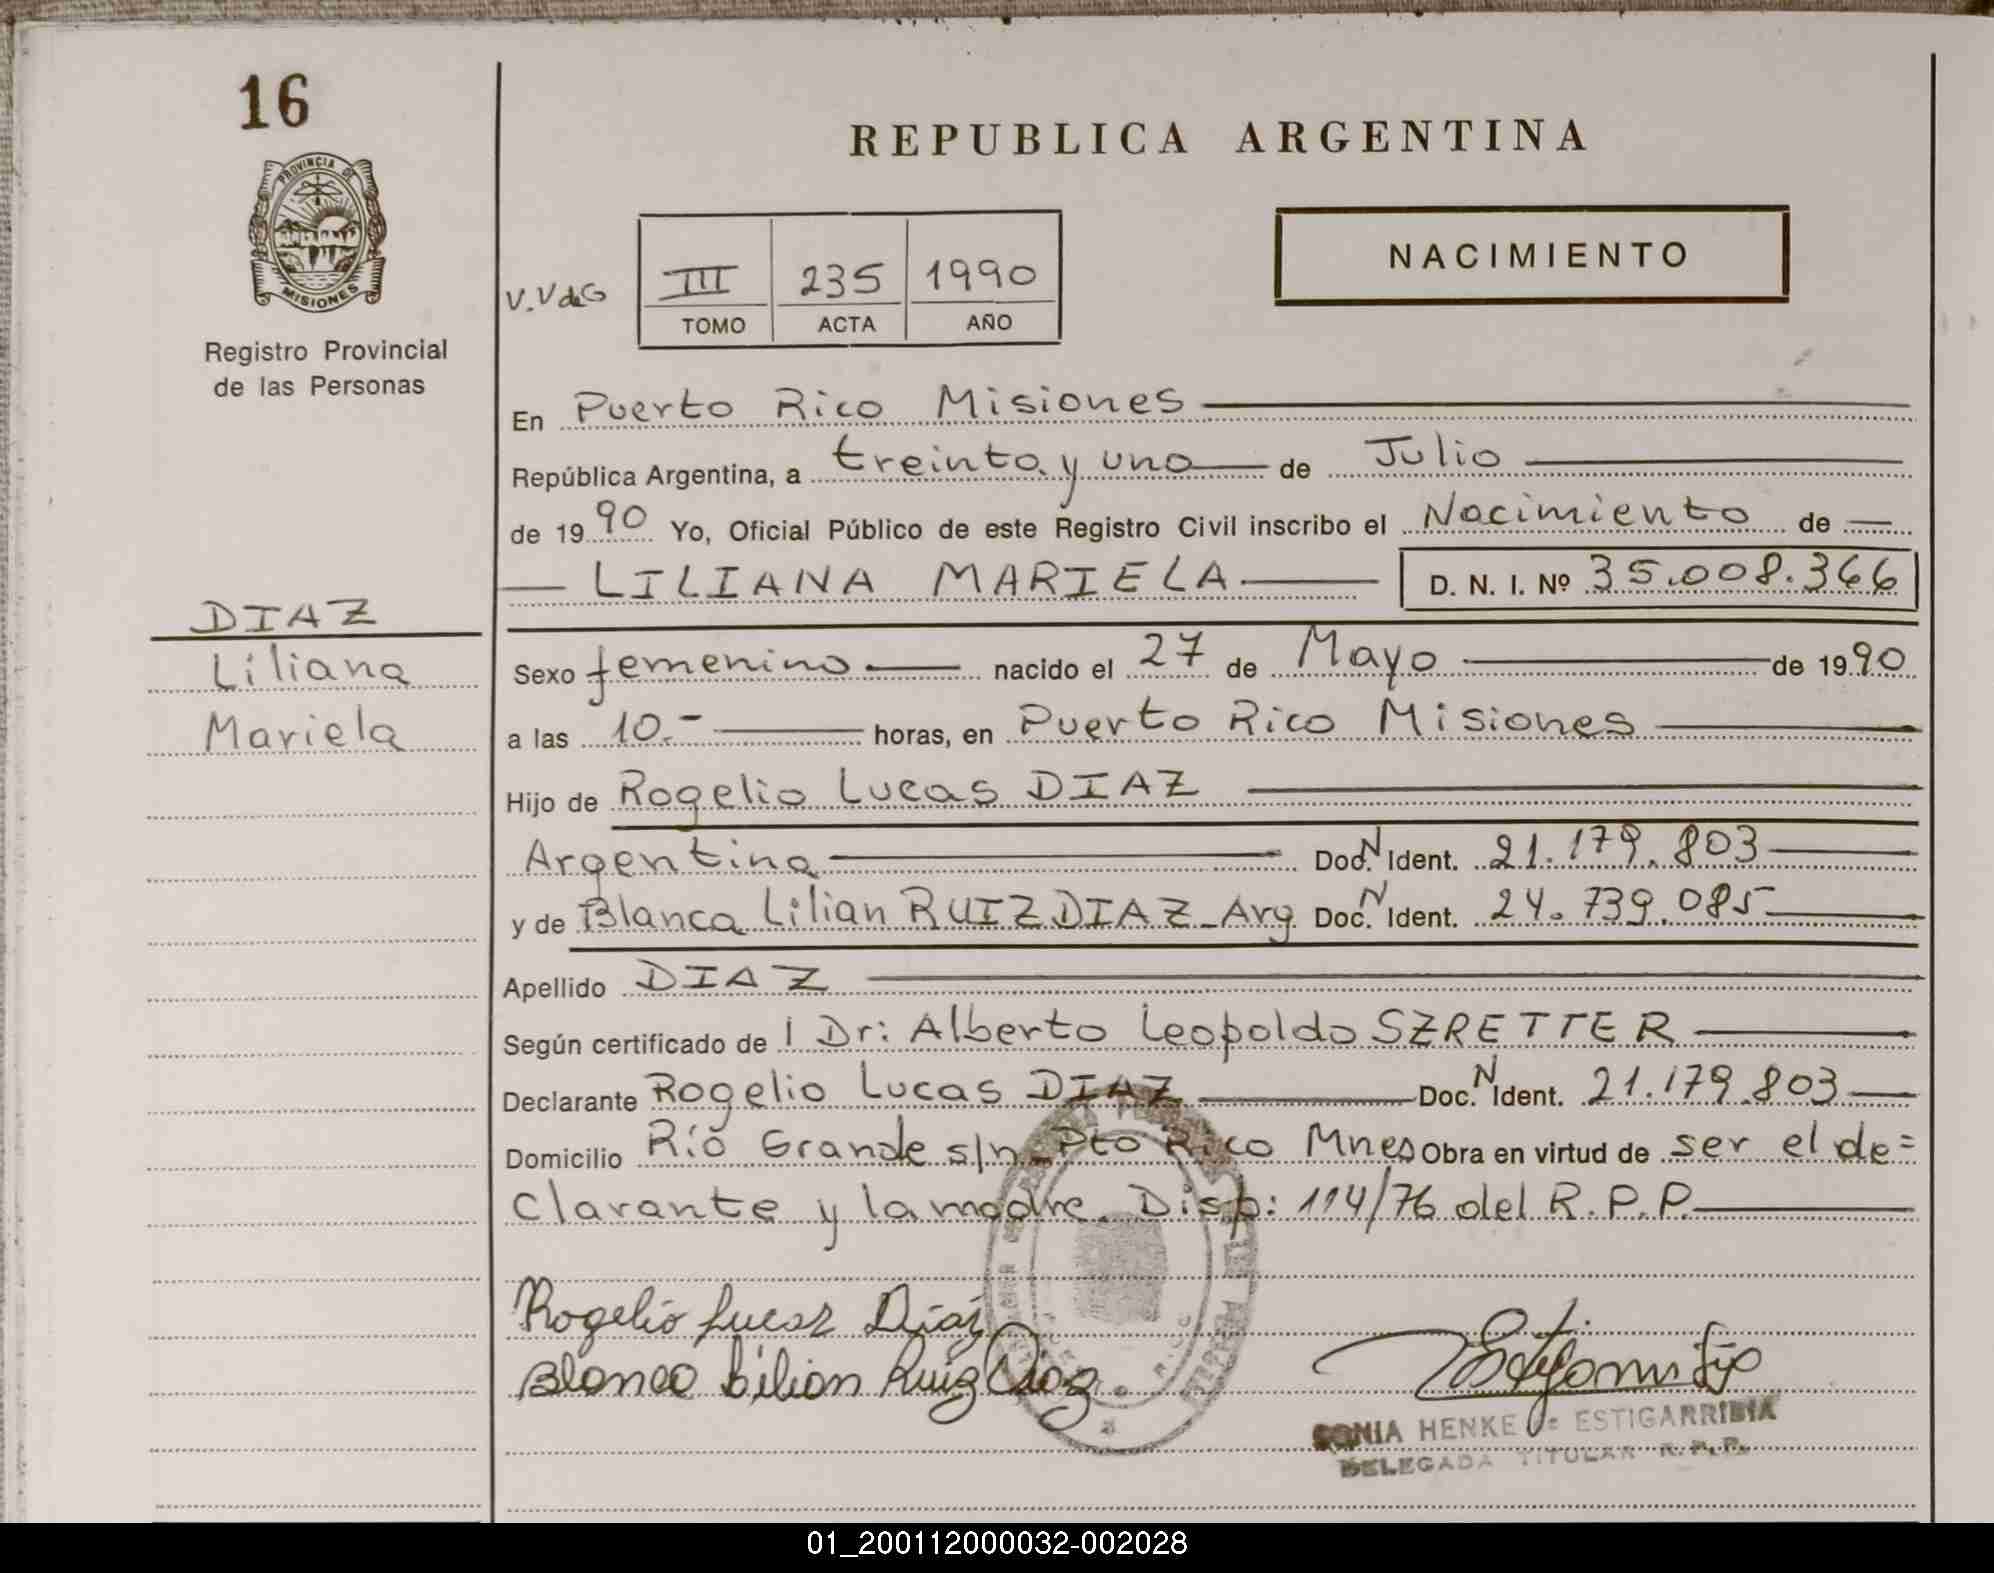 16
PROVINCIA DE
MISIONES
Registro Provincial
de las Personas
DIAZ
Liliana
Mariela
REPUBLICA ARGENTINA
NACIMIENTO
V.VdeG
III 235 1990
TOMO ACTA AÑO
En Puerto Rico Misiones
República Argentina, a treinta y uno de Julio
de 1990 Yo, Oficial Público de este Registro Civil inscribo el Nacimiento de
LILIANA MARIELA D. N. I. Nº 35.008.366
Sexo femenino nacido el 27 de Mayo de 1990
a las 10.- horas, en Puerto Rico Misiones
Hijo de Rogelio Lucas DIAZ
Argentina Doc. N Ident. 21.179.803
y de Blanca Lilian RUIZ DIAZ-Arg. Doc. N Ident. 24.739.085
Apellido DIAZ
Según certificado de l Dr: Alberto Leopoldo SZRETTER
Declarante Rogelio Lucas DIAZ Doc. N Ident. 21.179.803
Domicilio Río Grande s/n Pto Rico Mnes Obra en virtud de ser el de=
clarante y la madre. Disp: 114/76 del R.P.P.
Rogelio Lucas Diaz
Blanca Lilian Ruiz Diaz
SONIA HENKE de ESTIGARRIBIA
DELEGADA TITULAR R.P.P.
01_200112000032-002028